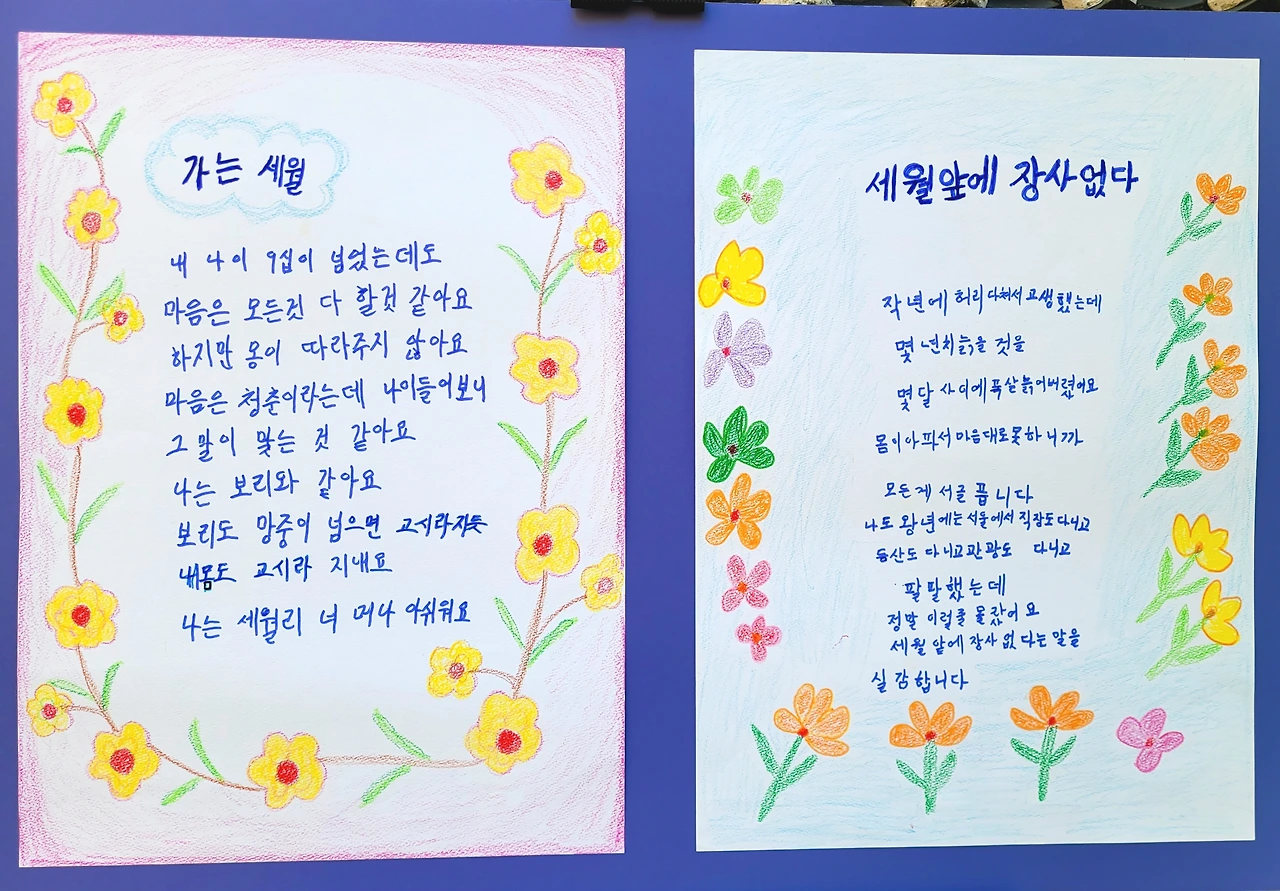 가는 세월
내 나이 9십이 넘었는데도
마음은 모든것 다 할것 같아요
하지만 몽이 따라주지 않아요
마음은 청춘이라는데 나이들어보니
그 말이 맞는 것 같아요
나는 보리와 같아요
보리도 망중이 넘으면 고시라지듯
내몸도 고시라 지내요
나는 세월리 너 머나 아쉬워요
세월앞에 장사없다
작년에 허리다쳐서 고생했는데
몇 년치늙을 것을
몇달 사이에폭삭늙어버렸어요
몸이아파서마음대로못하니까
모든게 서글픕니다
나도 왕년에는서울에서직장도다니고
등산도 다니고관광도 다니고
팔팔했는데
정말 이럴줄몰랐어요
세월 앞에 장사 없다는 말을
실감합니다